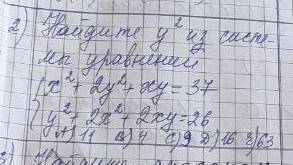 2) Найдите y² из систе-
мы уравнений
{x² + 2y² + xy = 37
y² + 2x² + 2xy = 26
A) 11 B) 4 C) 9 D) 16 E) 63